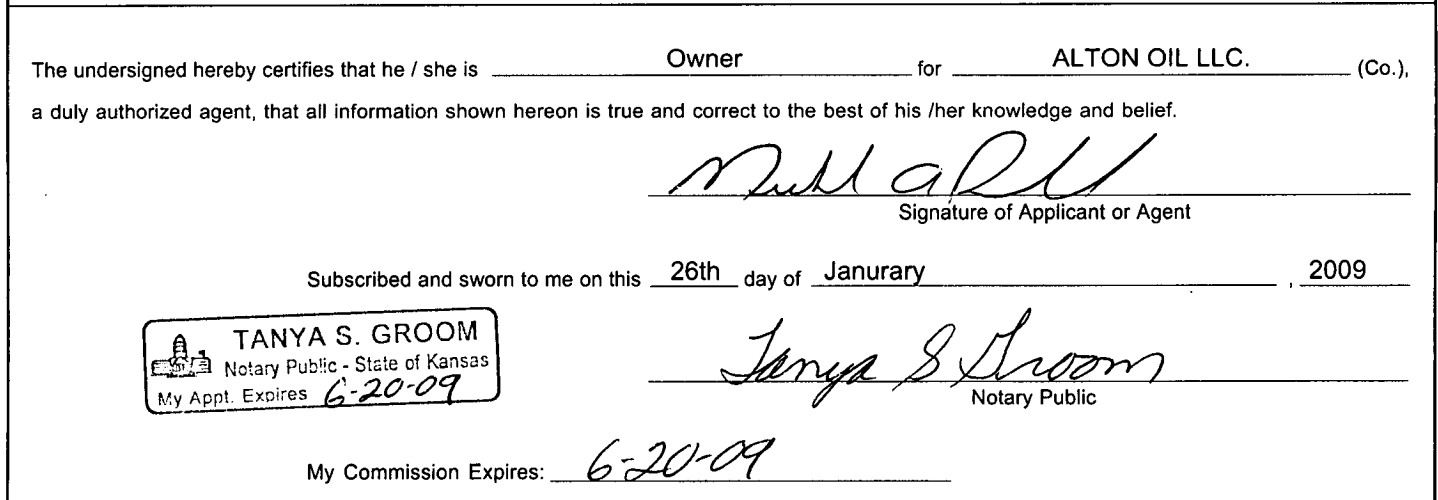 The undersigned hereby certifies that he / she is Owner for ALTON OIL LLC. (Co.),
a duly authorized agent, that all information shown hereon is true and correct to the best of his /her knowledge and belief.
Signature of Applicant or Agent
Subscribed and sworn to me on this 26th day of Janurary , 2009
TANYA S. GROOM
Notary Public - State of Kansas
My Appt. Expires 6-20-09
Tanya S Groom
Notary Public
My Commission Expires: 6-20-09